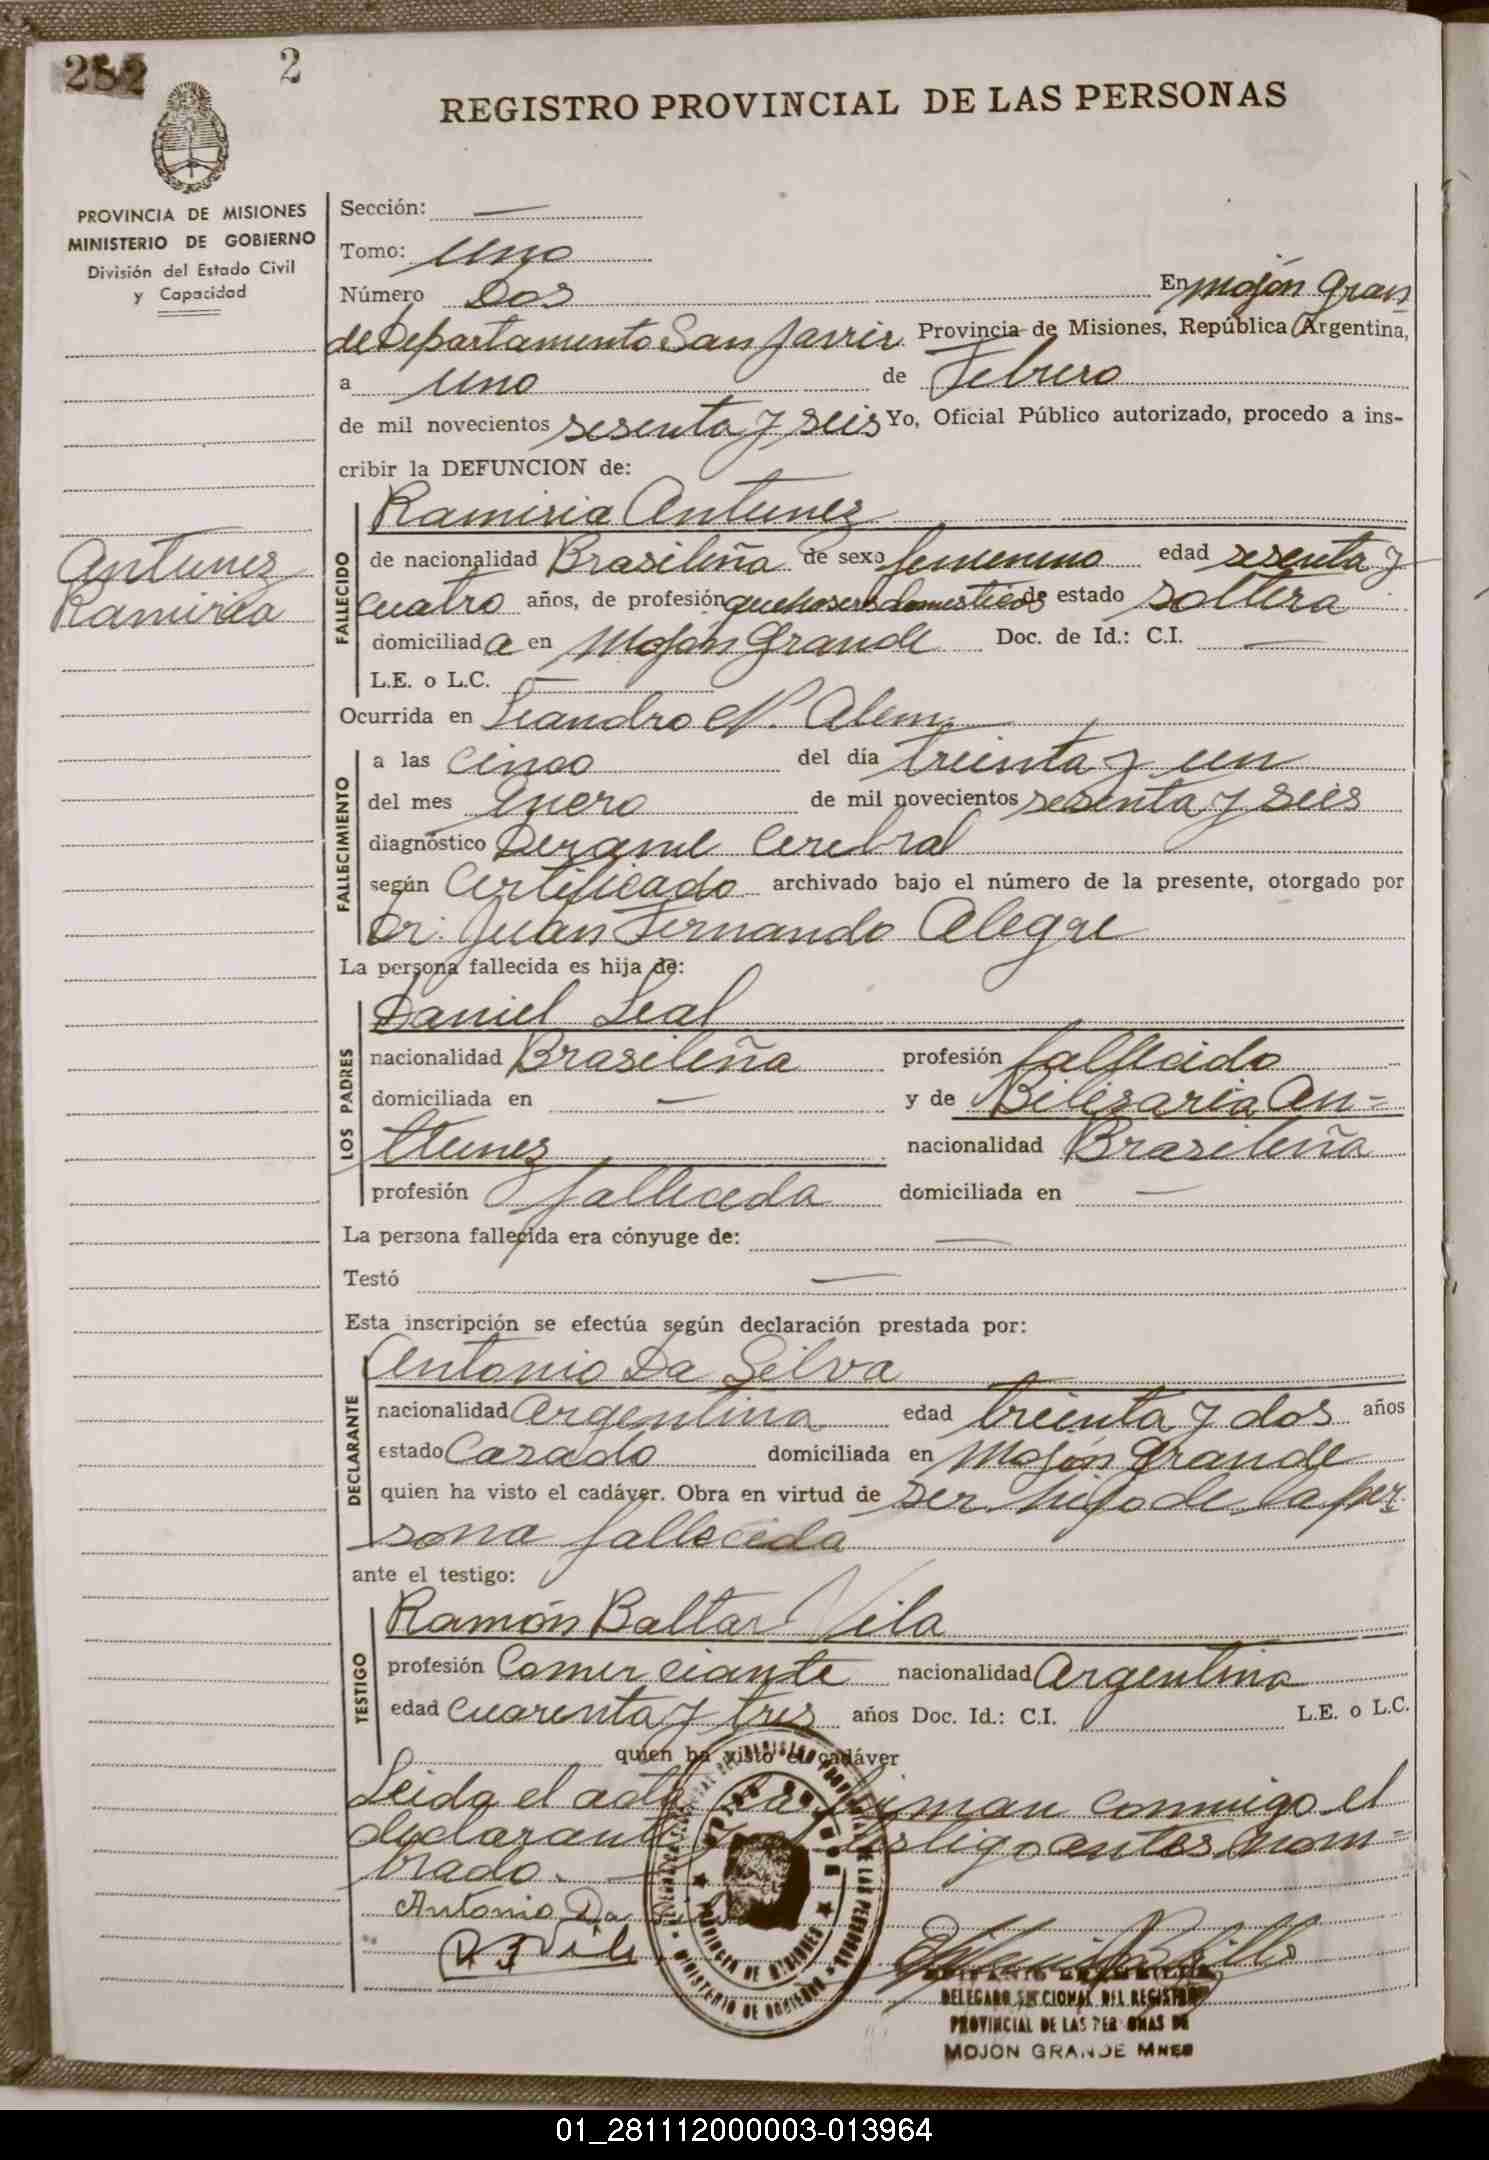 282 2
REGISTRO PROVINCIAL DE LAS PERSONAS
PROVINCIA DE MISIONES
MINISTERIO DE GOBIERNO
División del Estado Civil
y Capacidad
Antunez
Ramiria
Sección: —
Tomo: Uno
Número Dos En Mojón Gran
de Departamento San Javier Provincia de Misiones, República Argentina,
a uno de Febrero
de mil novecientos sesenta y seis Yo, Oficial Público autorizado, procedo a ins-
cribir la DEFUNCION de:
FALLECIDO
Ramiria Antunez
de nacionalidad Brasileña de sexo femenino edad sesenta y
cuatro años, de profesión quehaseres domesticos de estado soltera
domiciliada en Mojón Grande Doc. de Id.: C.I. —
L.E. o L.C. —
Ocurrida en Leandro N. Alem. —
FALLECIMIENTO
a las cinco del día treinta y un
del mes Enero de mil novecientos sesenta y seis
diagnóstico Derame Cerebral
según Certificado archivado bajo el número de la presente, otorgado por
Dr. Juan Fernando Alegre
La persona fallecida es hija de:
LOS PADRES
Daniel Leal
nacionalidad Brasileña profesión fallecido
domiciliada en — y de Bilizaria An=
ttunez nacionalidad Brasileña
profesión fallecida domiciliada en —
La persona fallecida era cónyuge de: —
Testó —
Esta inscripción se efectúa según declaración prestada por:
DECLARANTE
Antonio Da Silva
nacionalidad Argentina edad treinta y dos años
estado Casado domiciliada en Mojón Grande
quien ha visto el cadáver. Obra en virtud de ser hijo de la per
sona fallecida
ante el testigo:
TESTIGO
Ramón Baltar Vila
profesión Comerciante nacionalidad Argentina
edad cuarenta y tres años Doc. Id.: C.I. L.E. o L.C.
quien ha visto el cadáver
Leida el acta la firman conmigo el
declarante y el testigo antes nom=
brado. —
Antonio Da
R B Vila
PROVINCIA DE MISIONES
MINISTERIO DE GOBIERNO
DELEGADO SECCIONAL DEL REGISTRO
PROVINCIAL DE LAS PERSONAS DE
MOJON GRANDE MNES
01_281112000003-013964